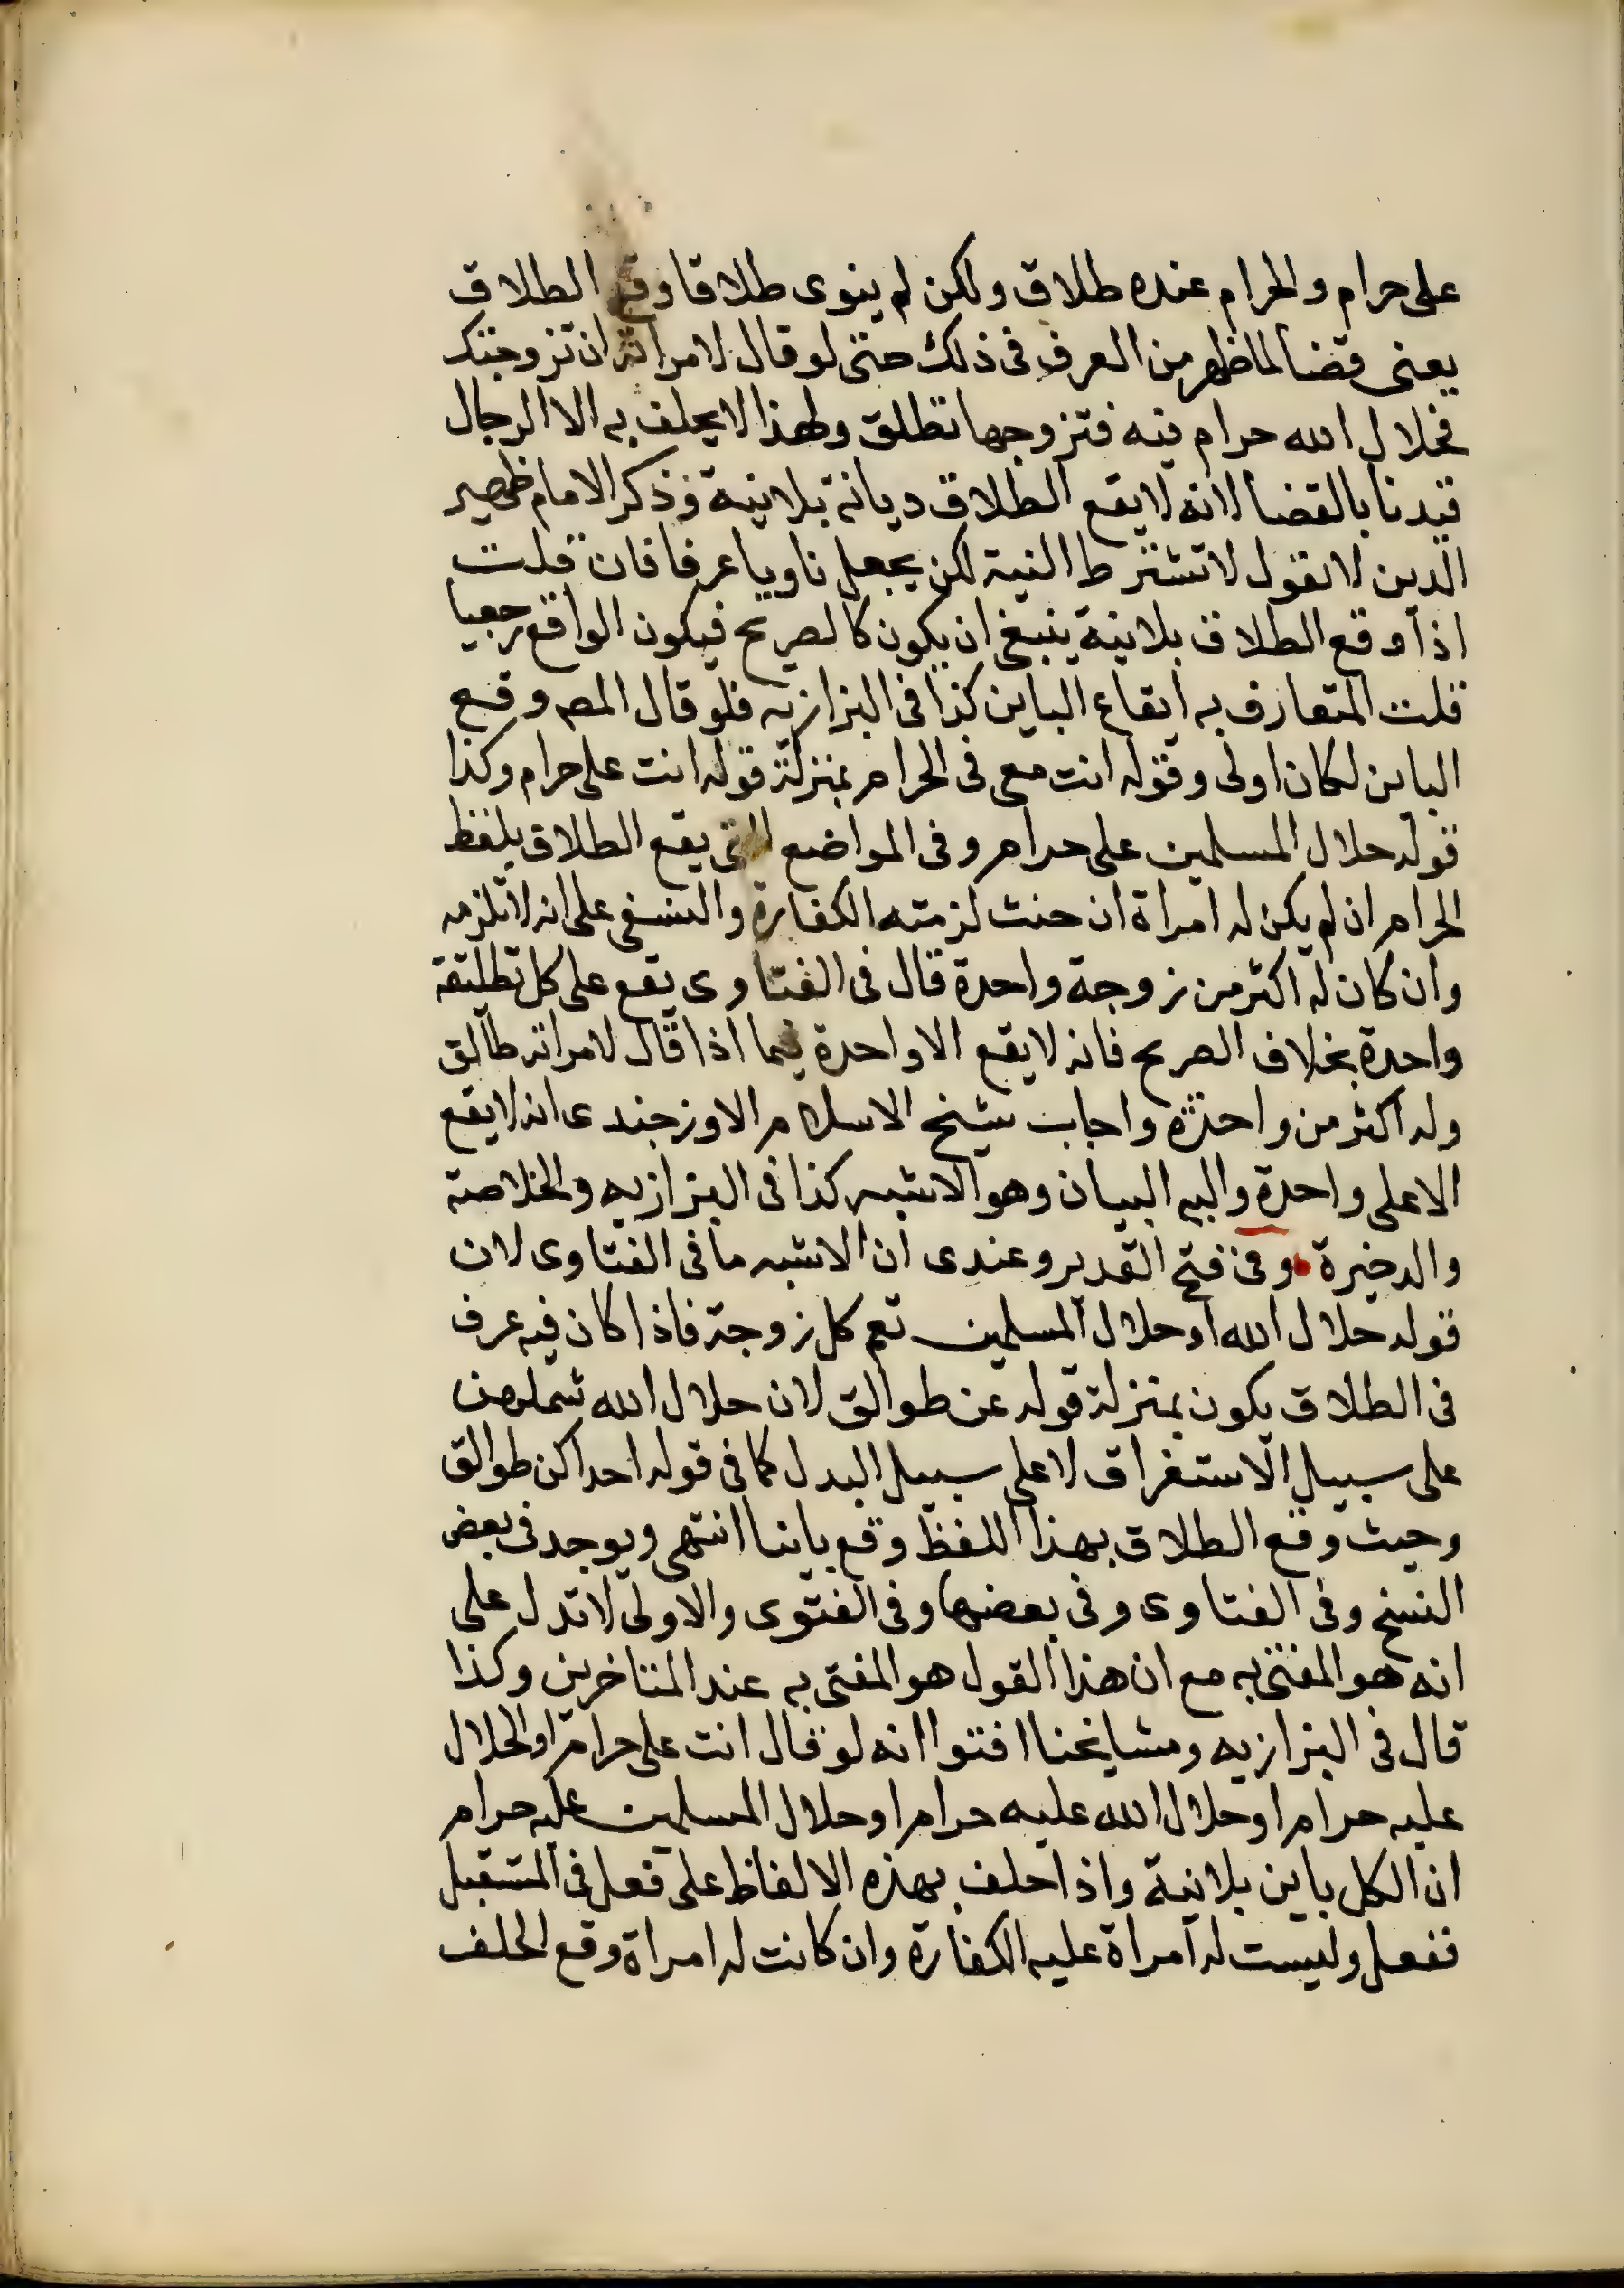 على حرام والحرام عنده طلاق ولكن لم ينوى طلاقا وقع الطلاق
يعنى قضا لما ظهر من العرف فى ذلك حتى لو قال لامراته ان تزوجتك
فحلال الله حرام فيه فتزوجها تطلق ولهذا لا يحلف به الا الرجال
قيدنا بالقضا لانه لا يقع الطلاق ديانة بلا نية وذكر الامام ظهير
الدين لا نقول لا تشترط النية لكن يجعل ناويا عرفا فان قلت
اذا وقع الطلاق بلا نية ينبغى ان يكون كالصريح فيكون الواقع رجعيا
قلت المتعارف به ايقاع الباين كذا فى البزازيه فلو قال المص وقع
الباين لكان اولى وقوله انت معى فى الحرام بمنزلة قوله انت على حرام وكذا
قوله حلال المسلمين على حرام وفى المواضع التى يقع الطلاق بلفظ
الحرام ان لم يكن له امراة ان حنث لزمته الكفارة والنسفى على انه لا تلزمه
وان كان له اكثر من زوجة واحدة قال فى الفتاوى يقع على كل تطليقة
واحدة بخلاف الصريح فانه لا يقع الا واحدة فيما اذا قال لامراته طالق
وله اكثر من واحدة واجاب شيخ الاسلام الاوزجندى انه لا يقع
الا على واحدة واليه البيان وهو الاشبه كذا فى البزازيه والخلاصة
والدخيرة وفى فتح القدير وعندى ان الاشبه ما فى الفتاوى لان
قوله حلال الله او حلال المسلمين تعم كل زوجة فاذا كان فيه عرف
فى الطلاق يكون بمنزلة قوله عن طوالق لان حلال الله شملهن
على سبيل الاستغراق لا على سبيل البدل كما فى قوله احداكن طوالق
وحيث وقع الطلاق بهذا اللفظ وقع باينا انتهى ويوجد فى بعض
النسخ وفى الفتاوى وفى بعضها وفى الفتوى والاولى لا تدل على
انه هو المفتى به مع ان هذا القول هو المفتى به عند المتاخرين وكذا
قال فى البزازيه ومشايخنا افتوا انه لو قال انت على حرام او الحلال
عليه حرام او حلال الله عليه حرام او حلال المسلمين عليه حرام
ان الكل باين بلا نية واذا حلف بهذه الالفاظ على فعل فى المستقبل
ففعل وليست له امراة عليه الكفارة وان كانت له امراة وقع الحلف